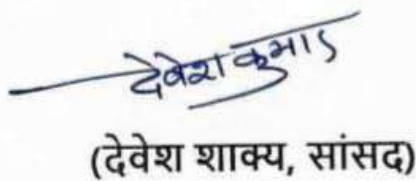 देवेश कुमार
(देवेश शाक्य, सांसद)